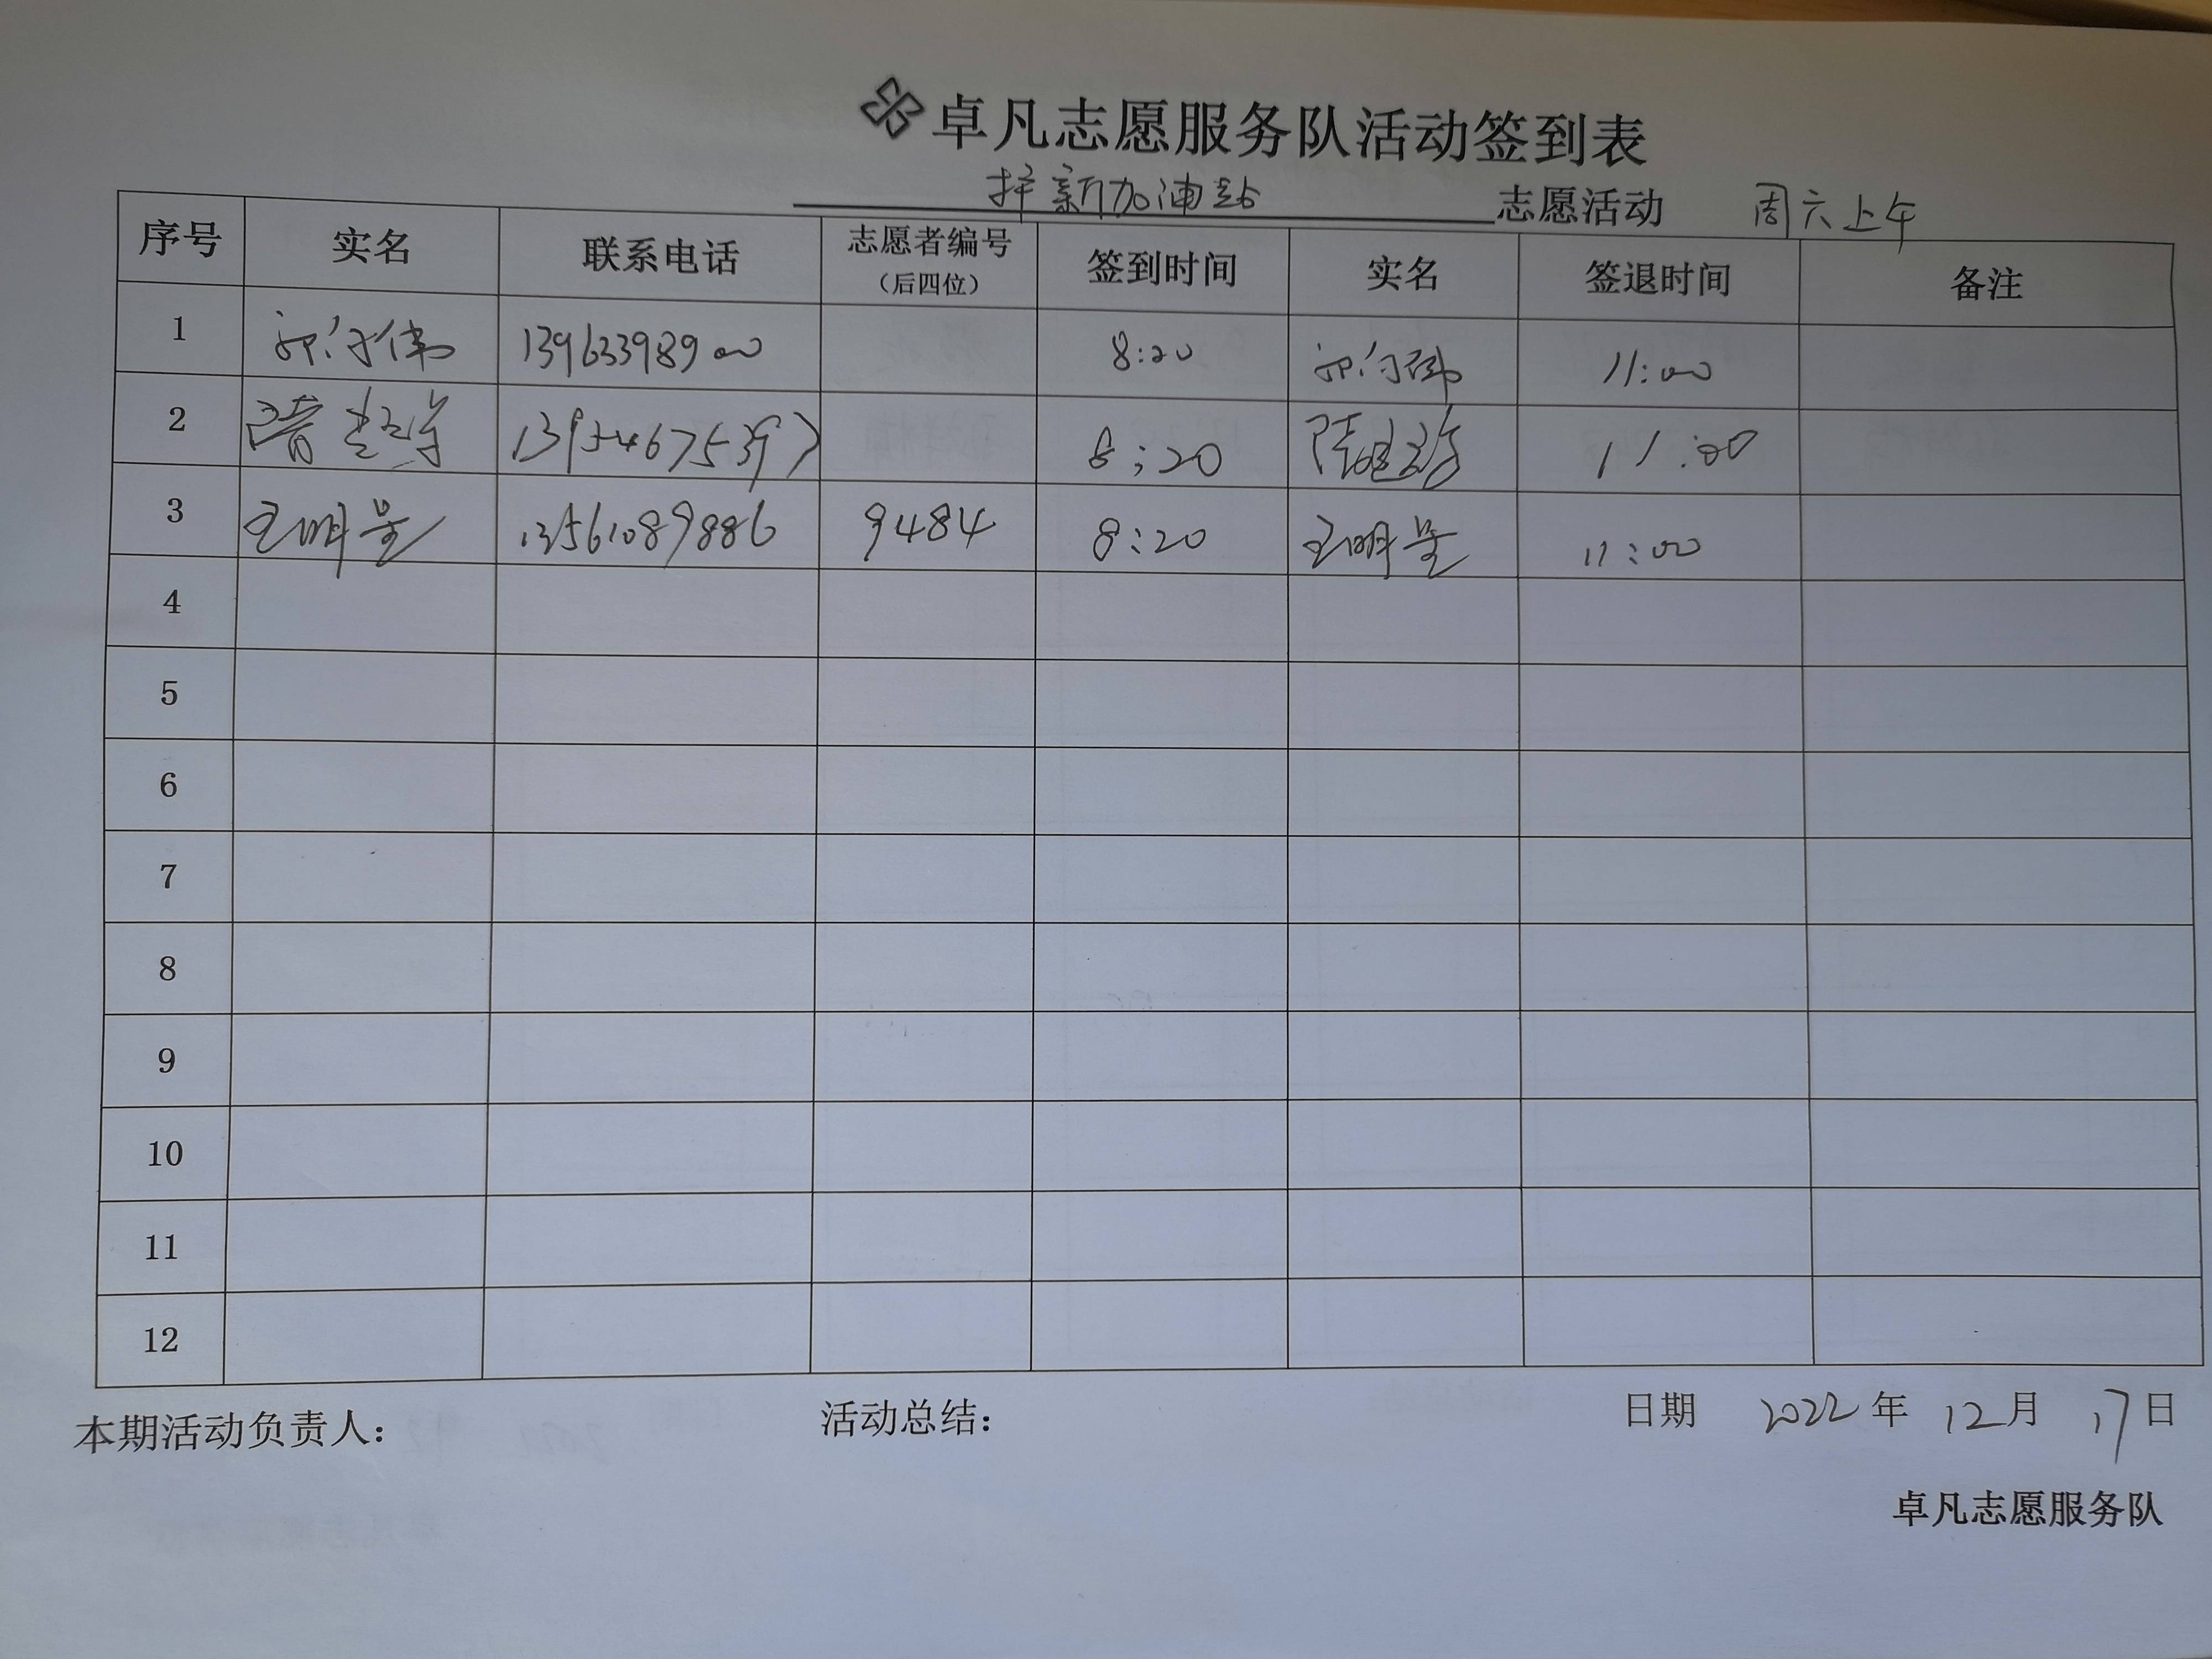 卓凡志愿服务队活动签到表
择新加油站 志愿活动 周六上午
序号 实名 联系电话 志愿者编号（后四位） 签到时间 实名 签退时间 备注
1 13963398900 8:20 11:00
2 13954675397 8:20 11:00
3 王明星 13561089886 9484 8:20 王明星 11:00
4
5
6
7
8
9
10
11
12
本期活动负责人： 活动总结： 日期 2022年 12月 17日
卓凡志愿服务队